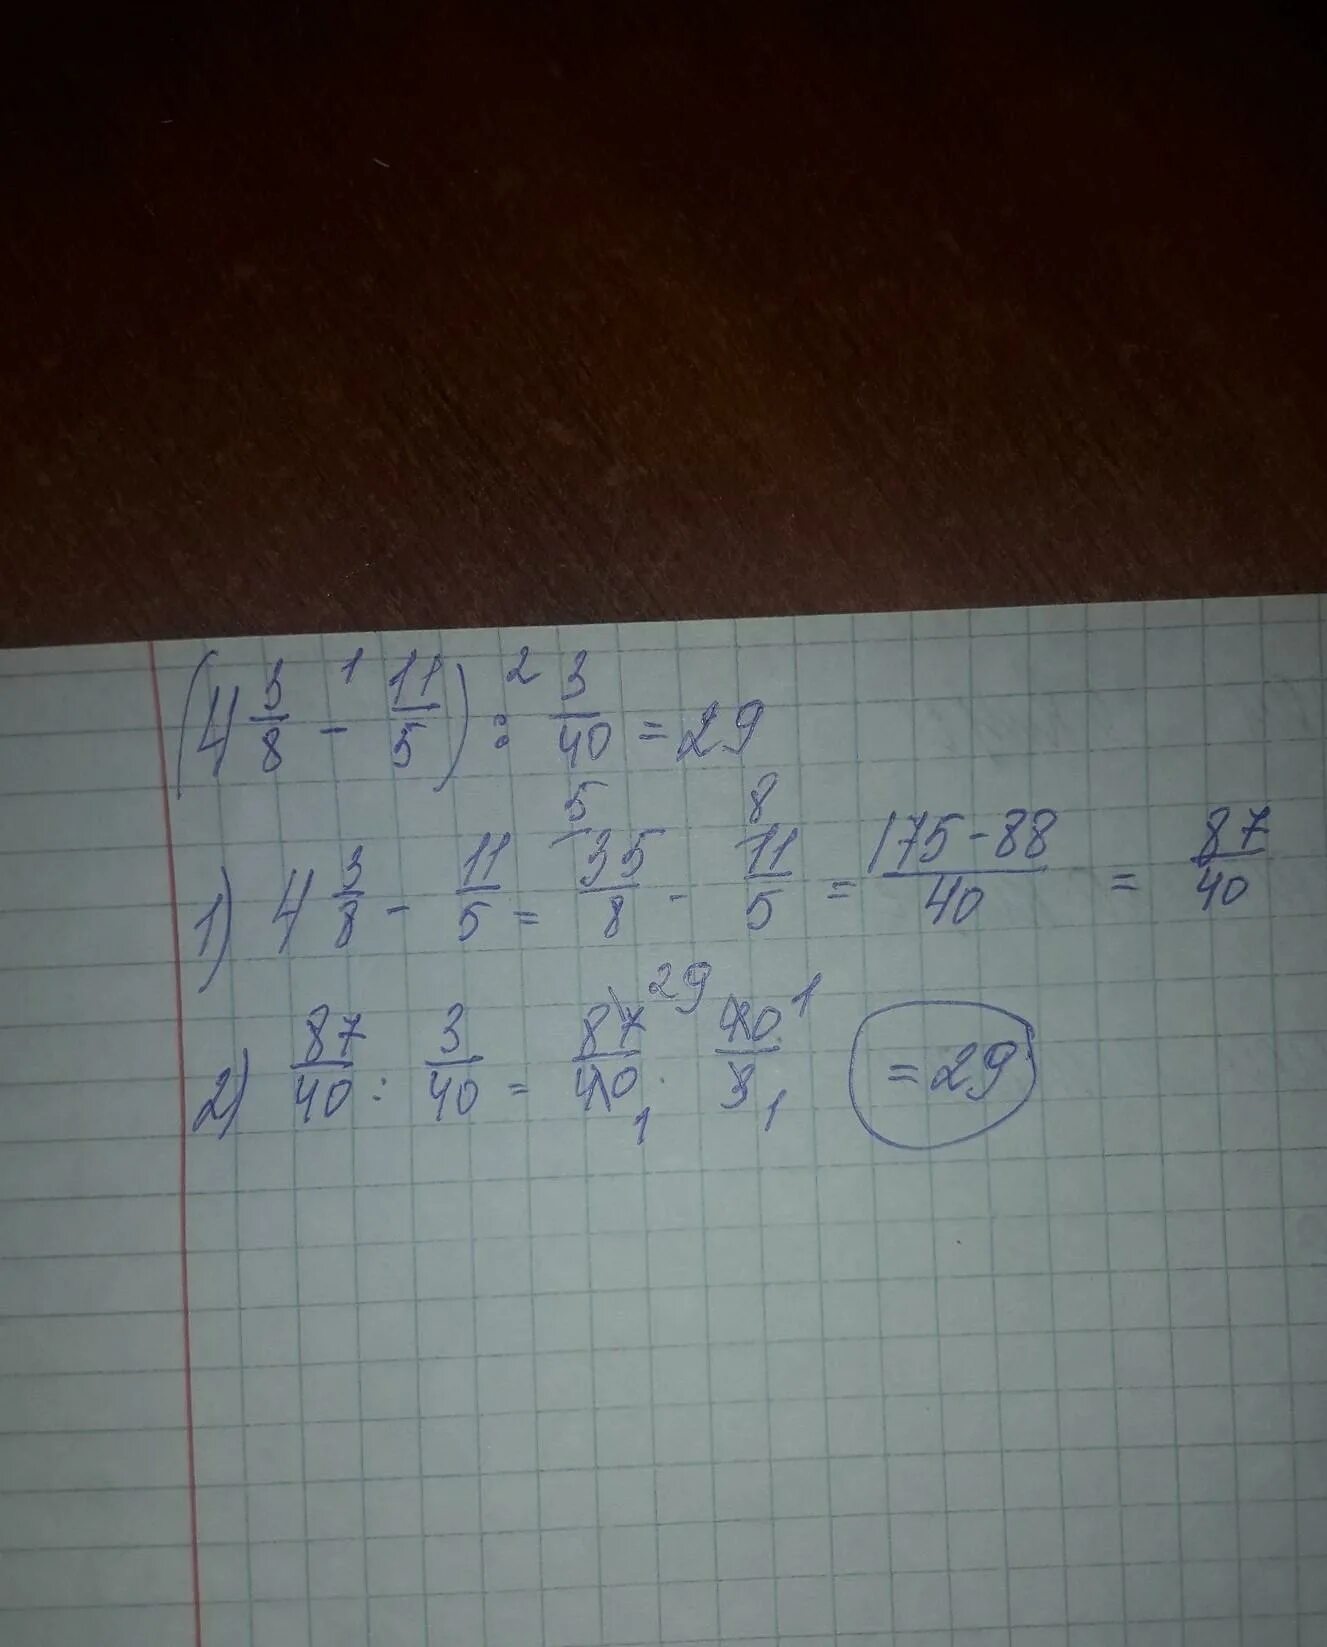 (4 3/8 -¹ 11/5) :² 3/40 = 29
1) 4 3/8 - 11/5 = ⁵35/8 - ⁸11/5 = 175-88/40 = 87/40
2) 87/40 : 3/40 = 87²⁹/40₁ · 40¹/3₁ = 29